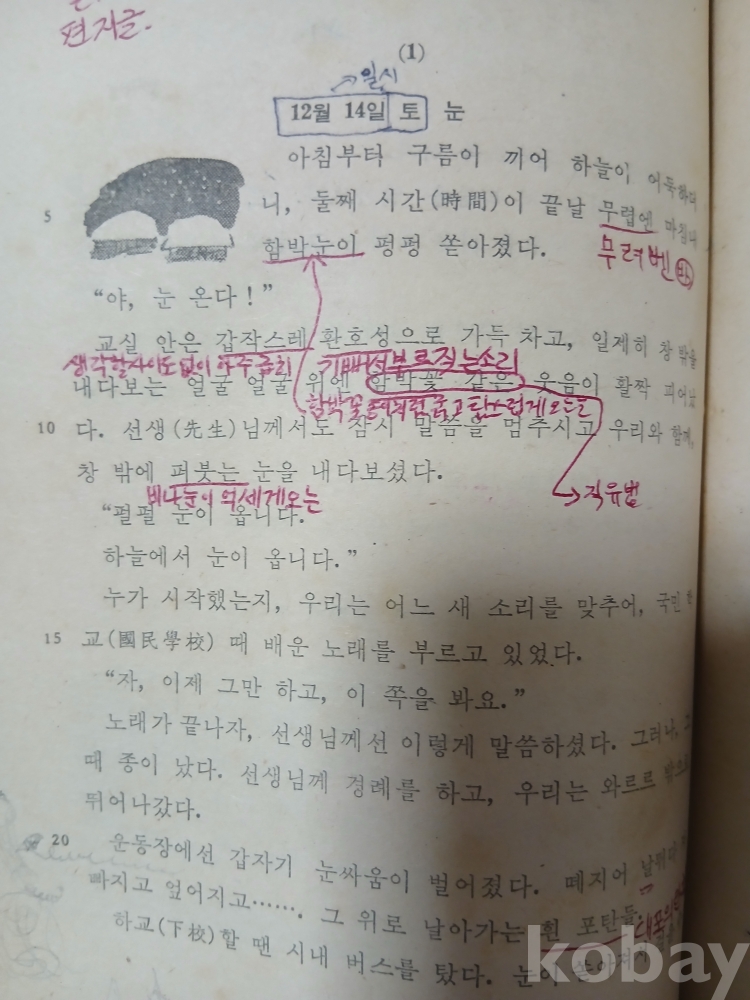 편지글.
(1)
일시
12월 14일 토 눈
아침부터 구름이 끼어 하늘이 어둑하더
5 니, 둘째 시간(時間)이 끝날 무렵엔 마침내
함박눈이 펑펑 쏟아졌다. 무려벤
"야, 눈 온다!"
교실 안은 갑작스레 환호성으로 가득 차고, 일제히 창 밖을
생각할 사이도 없이 아주 급히 기뻐서 부르짖는 소리
내다보는 얼굴 얼굴 위엔 함박꽃 같은 웃음이 활짝 피어났
함박꽃 송이처럼 굵고 탐스럽게 오는 눈
10 다. 선생(先生)님께서도 잠시 말씀을 멈추시고 우리와 함께,
창 밖에 퍼붓는 눈을 내다보셨다.
비나 눈이 억세게 오는 직유법
"펄펄 눈이 옵니다.
하늘에서 눈이 옵니다."
누가 시작했는지, 우리는 어느 새 소리를 맞추어, 국민
15 교(國民學校) 때 배운 노래를 부르고 있었다.
"자, 이제 그만 하고, 이 쪽을 봐요."
노래가 끝나자, 선생님께선 이렇게 말씀하셨다. 그러나,
때 종이 났다. 선생님께 경례를 하고, 우리는 와르르 밖으로
뛰어나갔다.
20 운동장에선 갑자기 눈싸움이 벌어졌다. 떼지어
빠지고 엎어지고……. 그 위로 날아가는 흰 포탄들.
하교(下校)할 땐 시내 버스를 탔다. 눈이
kobay